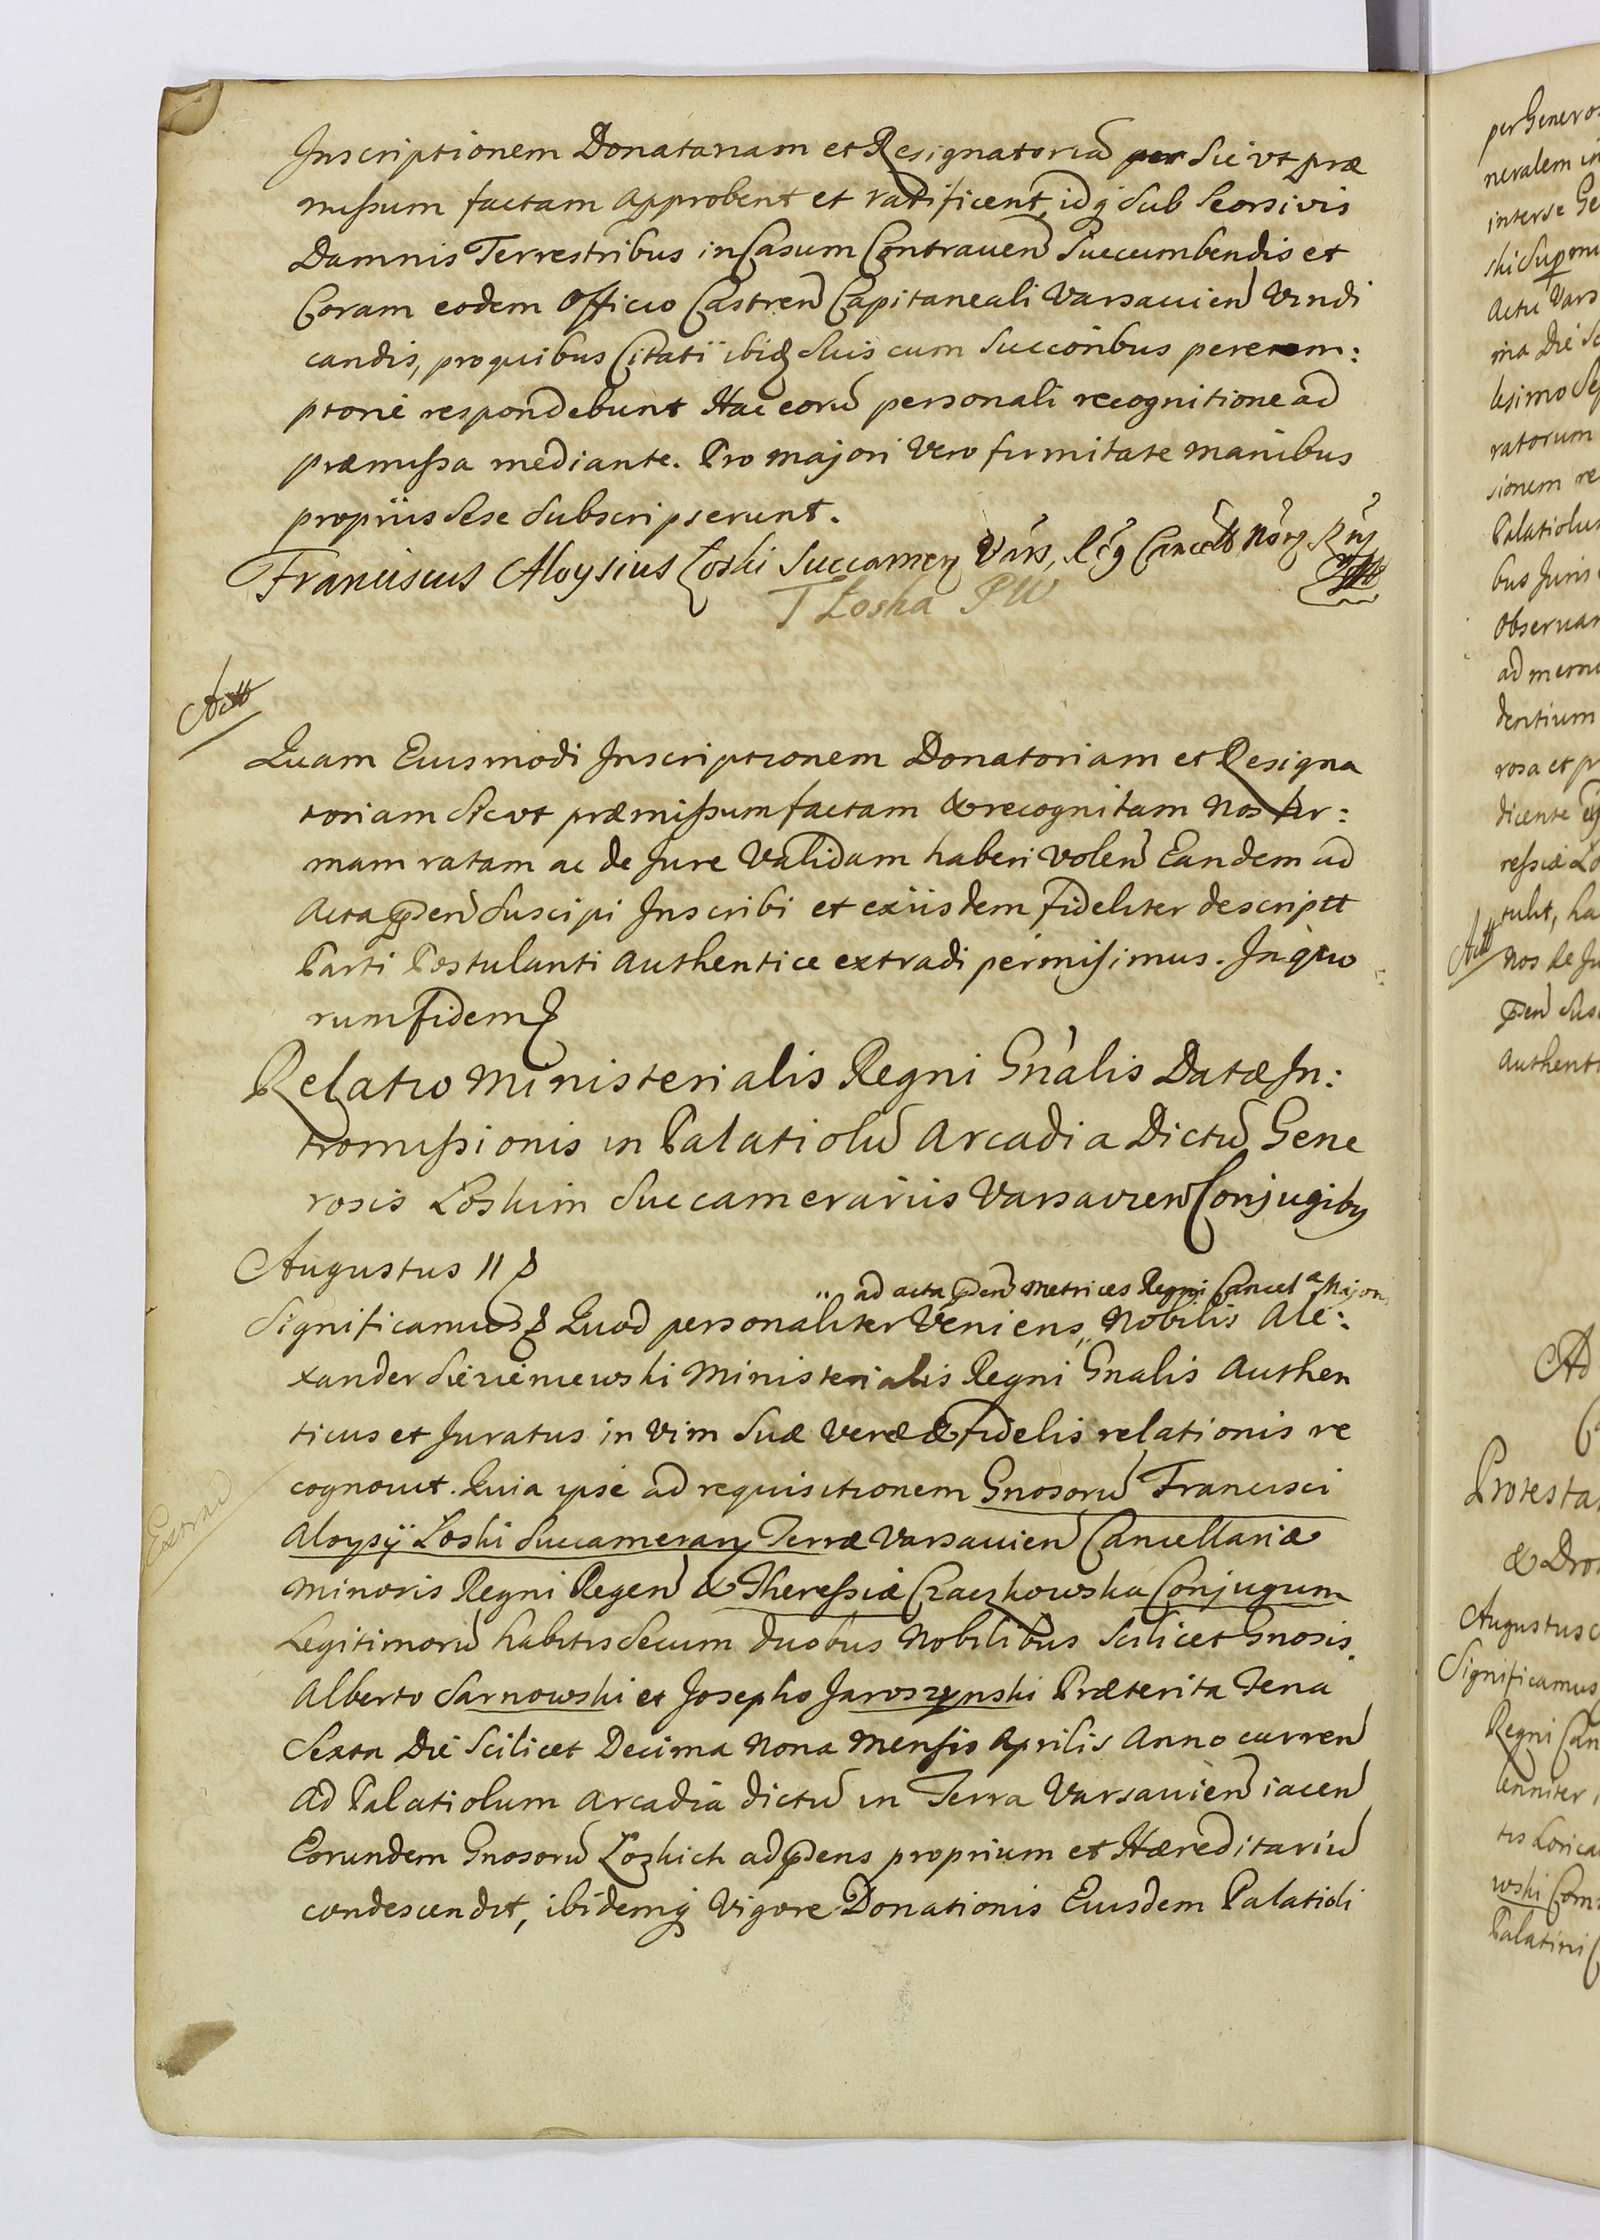 Inscriptionem Donatariam et Resignatoriā per Sic vt præ
missum factam Approbent et ratificent, idq̨ Sub Seorsivis
Damnis Terrestribus in Casum Contrauen̄ Succumbendis et
Coram eodem Officio Castren̄ Capitaneali Varsauien̄ Vindi
candis, pro quibus Citatĳ ibid Suis cum Succōribus perem:
ptorie respondebunt Hac eorū personali recognitione ad
præmissa mediante. Pro majori Vero firmitate manibus
propriis Sese Subscripserunt.
Franciscus Aloysius Łoski Succamery Vars, Reg Cancell
T Łoska PW
Actt
Quam Eiusmodi Inscriptionem Donatoriam et Resigna
toriam Sicvt præmissum factam & recognitam Nos fir:
mam ratam ac de Jure Validam haberi volen̄ Eandem ad
Acta p̄den̄ Suscipi Inscribi et exiisdem fideliter descriptt
Parti Postulanti Authentice extradi permisimus. In quo
rum fidem
Relatio Ministerialis Regni Gn̄alis Datæ In:
tromissionis in Palatiolū Arcadia Dictū Gene
rosis Łoskim Succamerariis Varsavien̄ Conjugibus
Augustus II
ad acta p̄den̄ Metrices Regni Cancelª Major
Significamus Quod personaliter Veniens,, Nobilis Ale:
xander Sieieniewski Ministerialis Regni Gnalis Authen
ticus et Juratus in Vim Suæ Veræ & fidelis relationis re
cognouit. Quia ipse ad requisitionem Gnosorū Francisci
Aloysĳ Łoski Succamerarĳ Terræ Varsauien̄ Cancellariæ
Minoris Regni Regen̄ & Theressiæ Czaczkowska Conjugum
Legitimorū habitis Secum duobus Nobilibus Scilicet Gnosis
Alberto Sarnowski et Josepho Jaroszynski Præterita Feria
Sexta Die Scilicet Decima Nona Mensis Aprilis Anno curren̄
Ad Palatiolum Arcadia dictū in Terra Varsauien̄ iacen̄
Eorundem Gnosorū Łozkich ad p̄dens proprium et Hæreditariū
condescendit, ibidemq̨ Vigore Donationis Eiusdem Palatioli
per Genero
neralem in
inter se Ge
Actu Vars
ma Die
ratorum
sionem re
Palatiolu
bus Juris
Observan
dentium
rosa et pr
dicente
tulit, ha
Actt
Nos de Ju
p̄den̄ Sus
Authenti
Ad
Protesta
& Dro
Augustus
Significamus
Regni Can
wski Com
Palatini